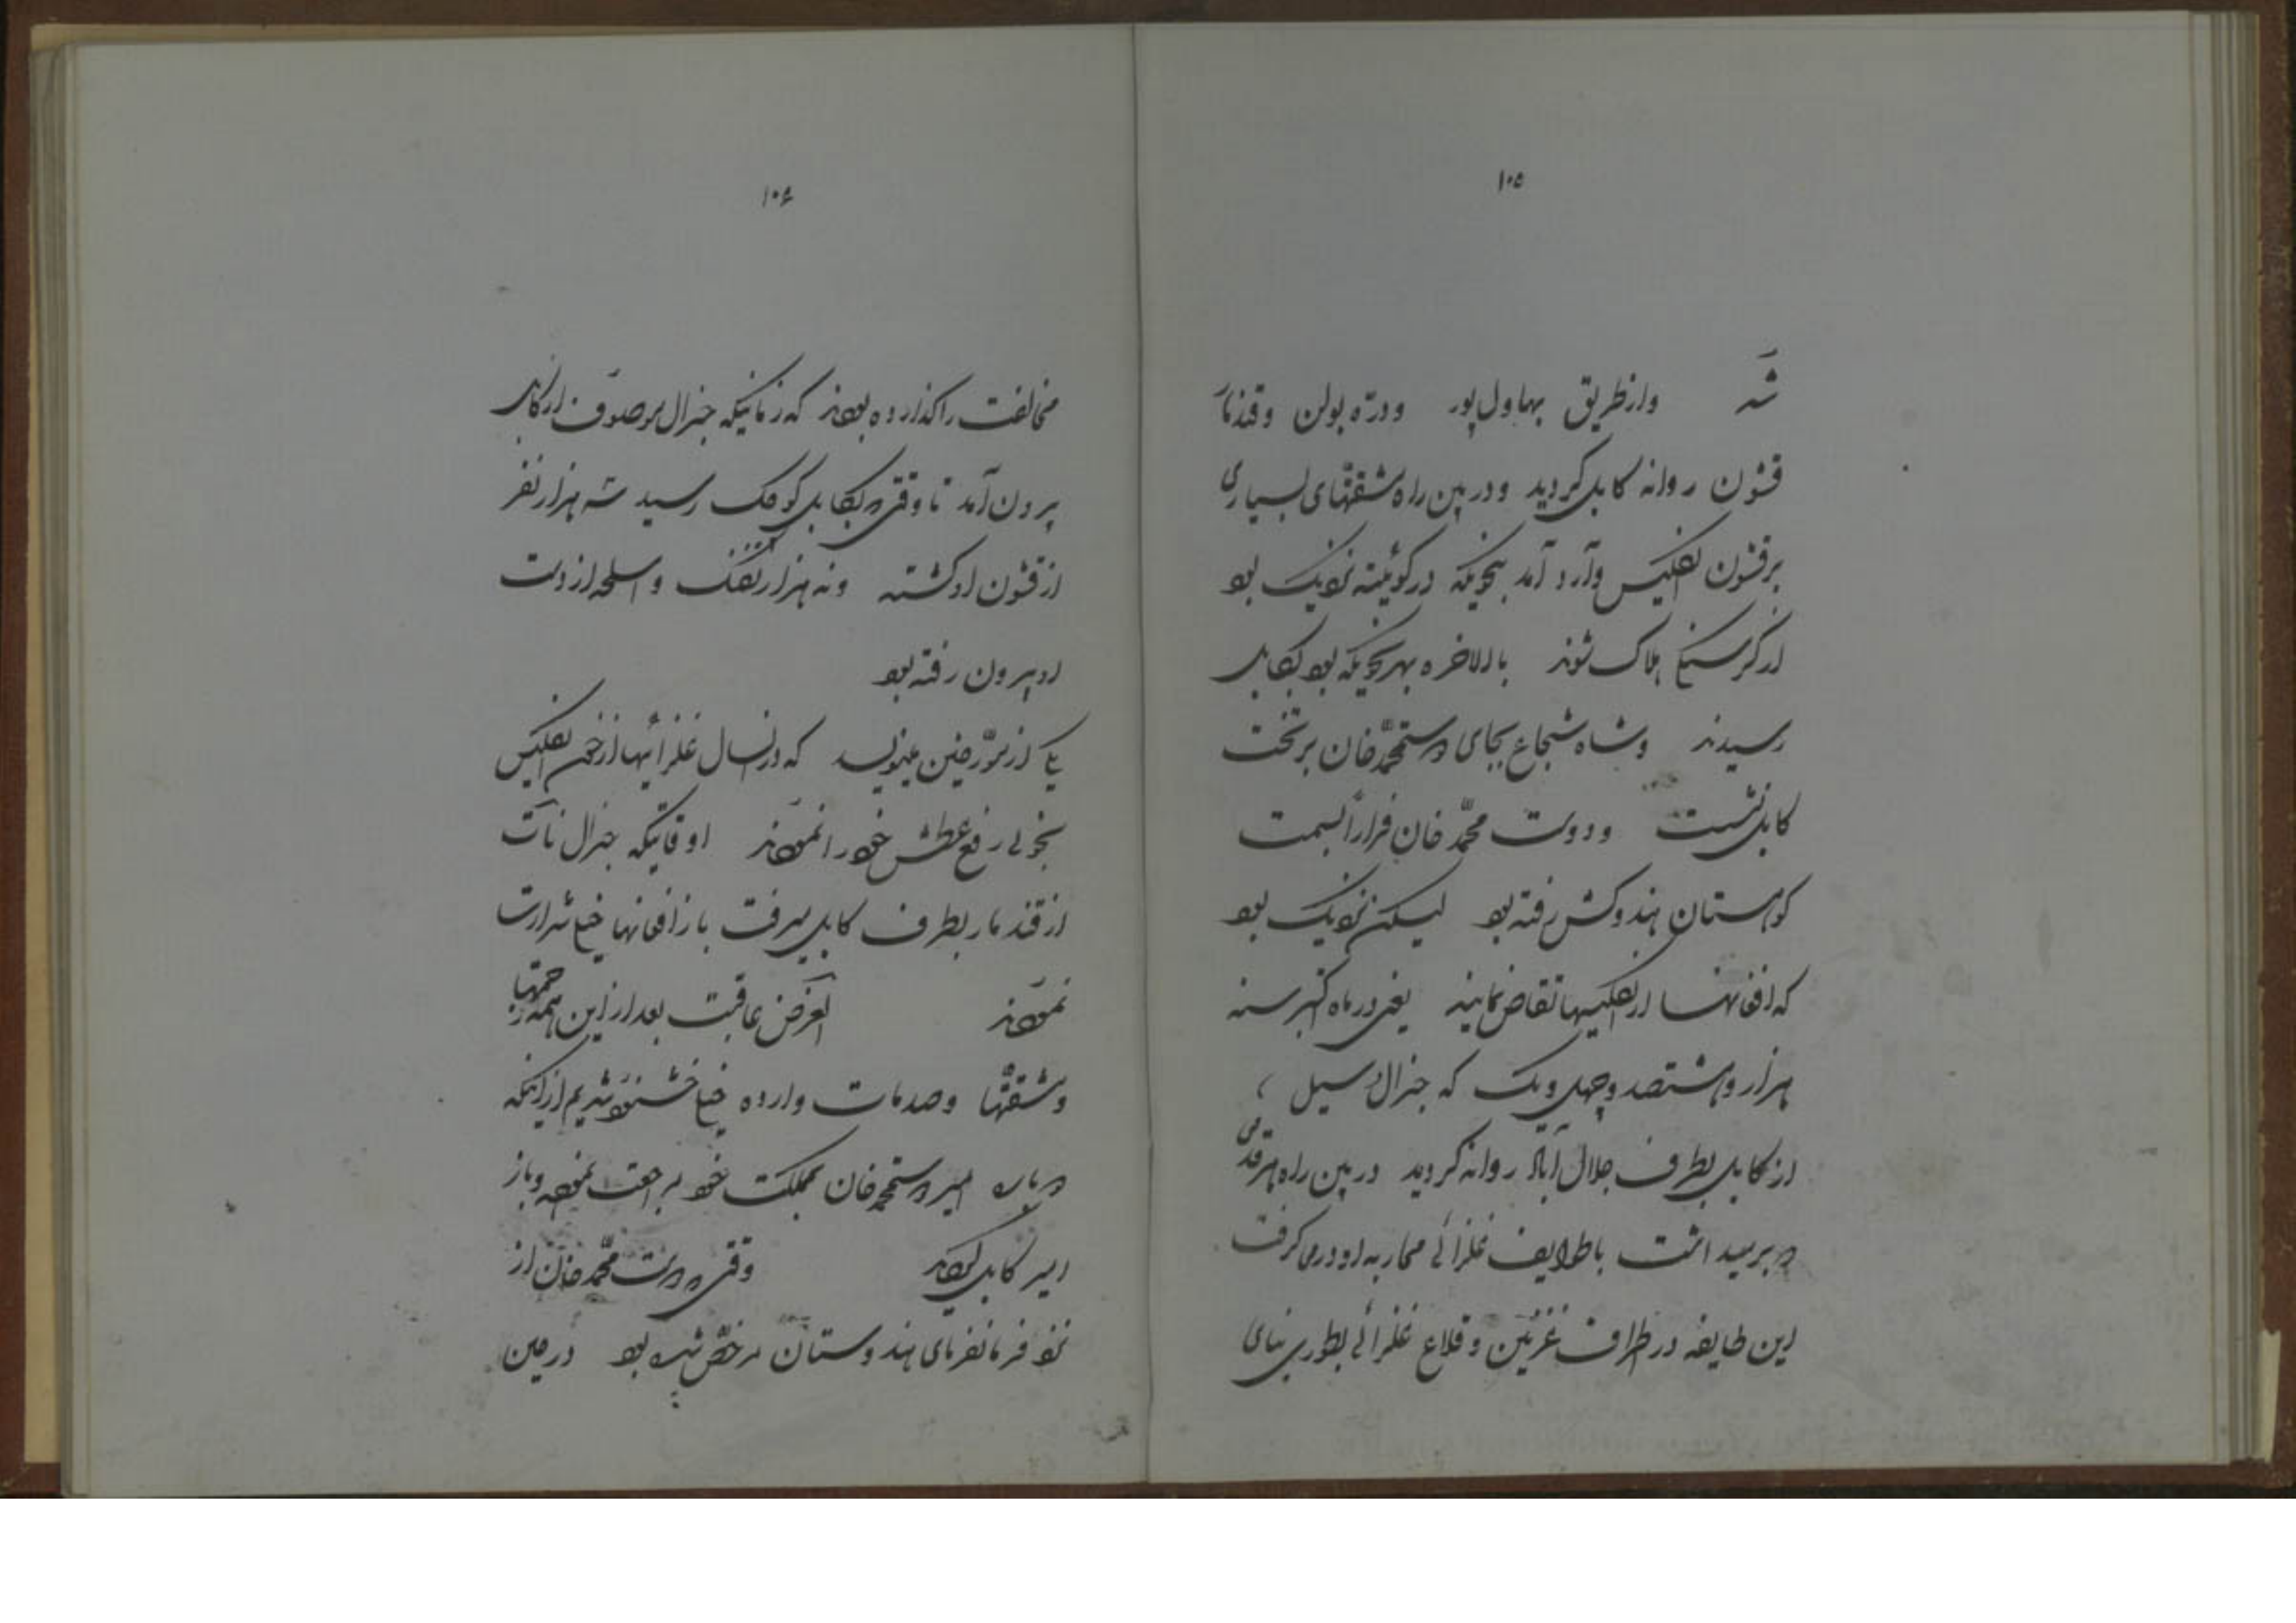 ۱۰۵
شد وازطریق بهاول پور ودرّه بولن وقندهار
قشون روانه کابل گردید ودربین راه مشقتهای بسیاری
برقشون انگلیس وارد آمد بنحویکه درکویته نزدیک بود
از گرسنگی هلاک شوند بالاخره بهرنحویکه بود بکابل
رسیدند وشاه شجاع بجای دوستمحمّدخان برتخت
کابل نشست ودوست محمّد خان فراراً بسمت
کوهستان هندوکش رفته بود لیکن نزدیک بود
که افغانها از انگلیسها تقاص نمایند یعنی در ماه اکتبر سنه
هزار وهشتصد وچهل ویک که جنرال سیل
از کابل بطرف جلال آباد روانه گردید در بین راه هرقدمی
که برمیداشت باطوایف غلزائی محاربه او درمی گرفت
این طایفه دراطراف غزنین وقلاع غلزائی بطوری بنای
۱۰۶
مخالفت راگذارده بودند که زمانیکه جنرال موصوف از کابل
بیرون آمد تا وقتی که بکابل کوچک رسید سه هزار نفر
از قشون او کشته ونه هزار تفنگ واسلحه از دست
او بیرون رفته بود
یکی از مورّخین مینویسد که درانسال غلزائیها از خون انگلیس
بخوبی رفع عطش خود را نمودند اوقاتیکه جنرال نات
از قندهار بطرف کابل میرفت باز افغانها خیلی شرارت
نمودند الغرض عاقبت بعد از این همه زحمتها
ومشقتها وصدمات وارده خیلی خوشنود شدیم از اینکه
دوباره امیر دوستمحمدخان بمملکت خود مراجعت نموده وباز
امیر کابل گردید وقتی که دوست محمّد خان از
نزد فرمانفرمای هندوستان مرخّص شده بود در حین